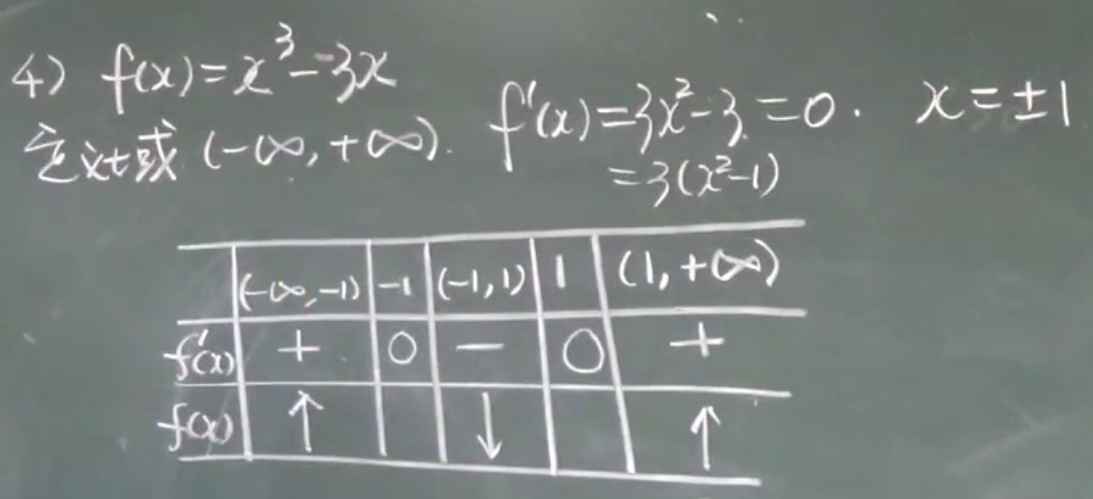 4) f(x)=x³-3x
定义域 (-∞,+∞). f'(x)=3x²-3=0. x=±1
=3(x²-1)
(-∞,-1) -1 (-1,1) 1 (1,+∞)
f'(x) + 0 - 0 +
f(x) ↑ ↓ ↑